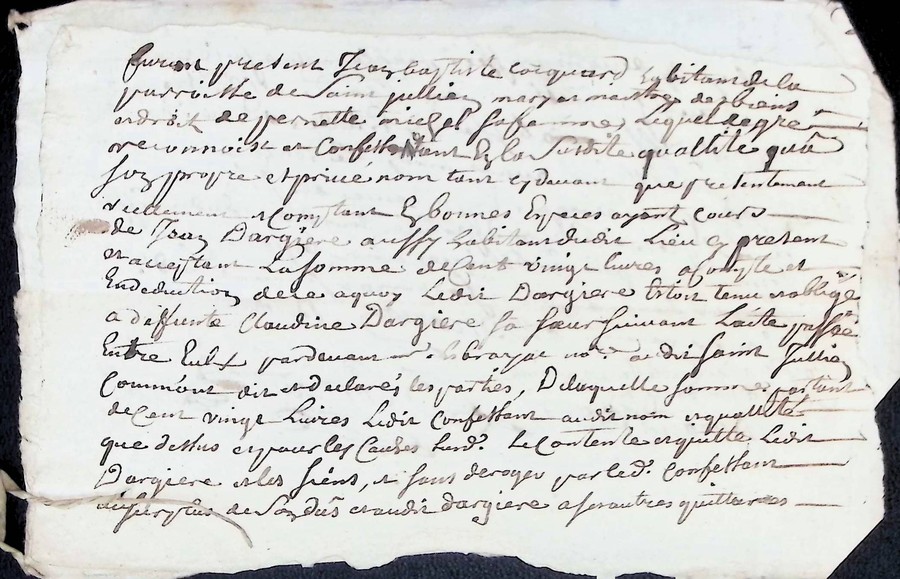 furent present Jean baptiste coequard habitant de la
parroisse de Saint jullien mary et maistre des biens
et droit de pernette miel sa femme Lequel de gré
reconnoist et Confesse tant En la Susdite quallité qu'a
son propre et privé nom tant cy devant que presentement
reellement et Comptant En bonnes Especes ayant cours
de Jean Dargiere aussy habitant dudit Lieu cy present
et acceptant La somme de Cent vingt livres a Compte et
En deduction de ce a quoy Ledit Dargiere Estoit tenu et obligé
a deffunte Claudine Dargiere sa soeur suivant L'acte passé
Entre Eulx par devant me. no.re audit Saint Jullien
Comme ont dit et declarés les parties, De laquelle somme partant
de Cent vingt Livres Ledit Confessant audit nom et quallité
que dessus et pour les Causes susd. se Contente et quitte Ledit
Dargiere et les siens, et sans deroger par led. Confessant
au surplus de son dû et audit dargiere a ses autres quittances